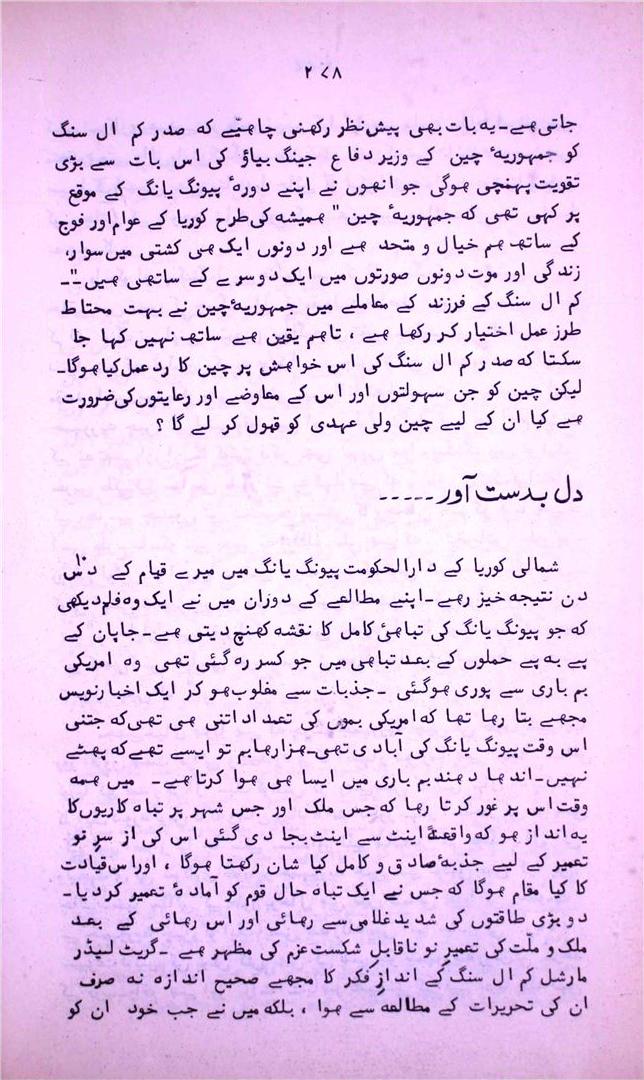 ۲۷۸
جاتی ہے۔ یہ بات بھی پیش نظر رکھنی چاہئیے کہ صدر کم ال سنگ
کو جمہوریۂ چین کے وزیر دفاع جینگ بیاؤ کی اس بات سے بڑی
تقویت پہنچی ہوگی جو انھوں نے اپنے دورۂ پیونگ یانگ کے موقع
پر کہی تھی کہ جمہوریۂ چین " ہمیشہ کی طرح کوریا کے عوام اور فوج
کے ساتھ ہم خیال و متحد ہے اور دونوں ایک ہی کشتی میں سوار،
زندگی اور موت دونوں صورتوں میں ایک دوسرے کے ساتھی ہیں "۔
کم ال سنگ کے فرزند کے معاملے میں جمہوریۂ چین نے بہت محتاط
طرز عمل اختیار کر رکھا ہے ، تاہم یقین ہے ساتھ نہیں کہا جا
سکتا کہ صدر کم ال سنگ کی اس خواہش پر چین کا رد عمل کیا ہوگا۔
لیکن چین کو جن سہولتوں اور اس کے معاوضے اور رعایتوں کی ضرورت
ہے کیا ان کے لیے چین ولی عہدی کو قبول کر لے گا ؟
دل بدست آور ۔۔۔۔۔
شمالی کوریا کے دارالحکومت پیونگ یانگ میں میرے قیام کے دس
دن نتیجہ خیز رہے۔ اپنے مطالعے کے دوران میں نے ایک وہ فلم دیکھی
کہ جو پیونگ یانگ کی تباہئ کامل کا نقشہ کھنچ دیتی ہے۔ جاپان کے
پے بہ پے حملوں کے بعد تباہی میں جو کسر رہ گئی تھی وہ امریکی
بم باری سے پوری ہوگئی ۔ جذبات سے مغلوب ہو کر ایک اخبار نویس
مجھے بتا رہا تھا کہ امریکی بموں کی تعداد اتنی ہی تھی کہ جتنی
اس وقت پیونگ یانگ کی آبادی تھی۔ ہزارہا بم تو ایسے تھے کہ پھٹے
نہیں۔ اندھا دھند بم باری میں ایسا ہی ہوا کرتا ہے ۔ میں ہمہ
وقت اس پر غور کرتا رہا کہ جس ملک اور جس شہر پر تباہ کاریوں کا
یہ انداز ہو کہ واقعۃً اینٹ سے اینٹ بجا دی گئی اس کی از سر نو
تعمیر کے لیے جذبۂ صادق و کامل کیا شان رکھتا ہوگا ، اور اس قیادت
کا کیا مقام ہوگا کہ جس نے ایک تباہ حال قوم کو آمادۂ تعمیر کر دیا۔
دو بڑی طاقتوں کی شدید غلامی سے رہائی اور اس رہائی کے بعد
ملک و ملّت کی تعمیر نو ناقابل شکست عزم کی مظہر ہے ۔ گریٹ لیڈر
مارشل کم ال سنگ کے انداز فکر کا مجھے صحیح اندازہ نہ صرف
ان کی تحریرات کے مطالعہ سے ہوا ، بلکہ میں نے جب خود ان کو